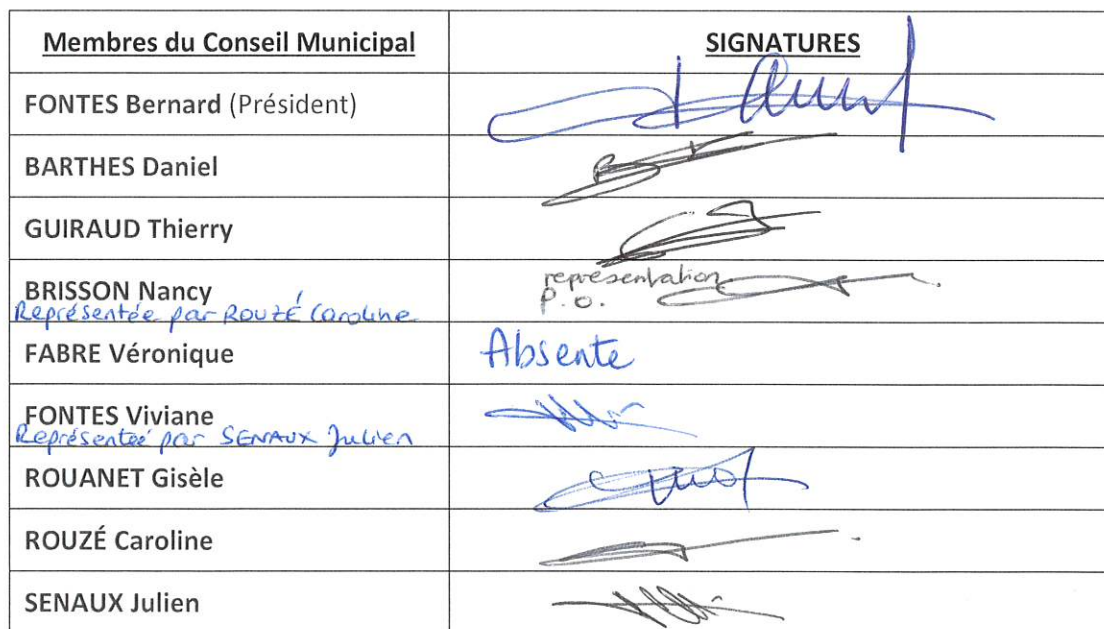 Membres du Conseil Municipal
SIGNATURES
FONTES Bernard (Président)
BARTHES Daniel
GUIRAUD Thierry
BRISSON Nancy
Représentée par ROUZÉ Caroline
représentation
P.O.
FABRE Véronique
Absente
FONTES Viviane
Représentée par SENAUX Julien
ROUANET Gisèle
ROUZÉ Caroline
SENAUX Julien